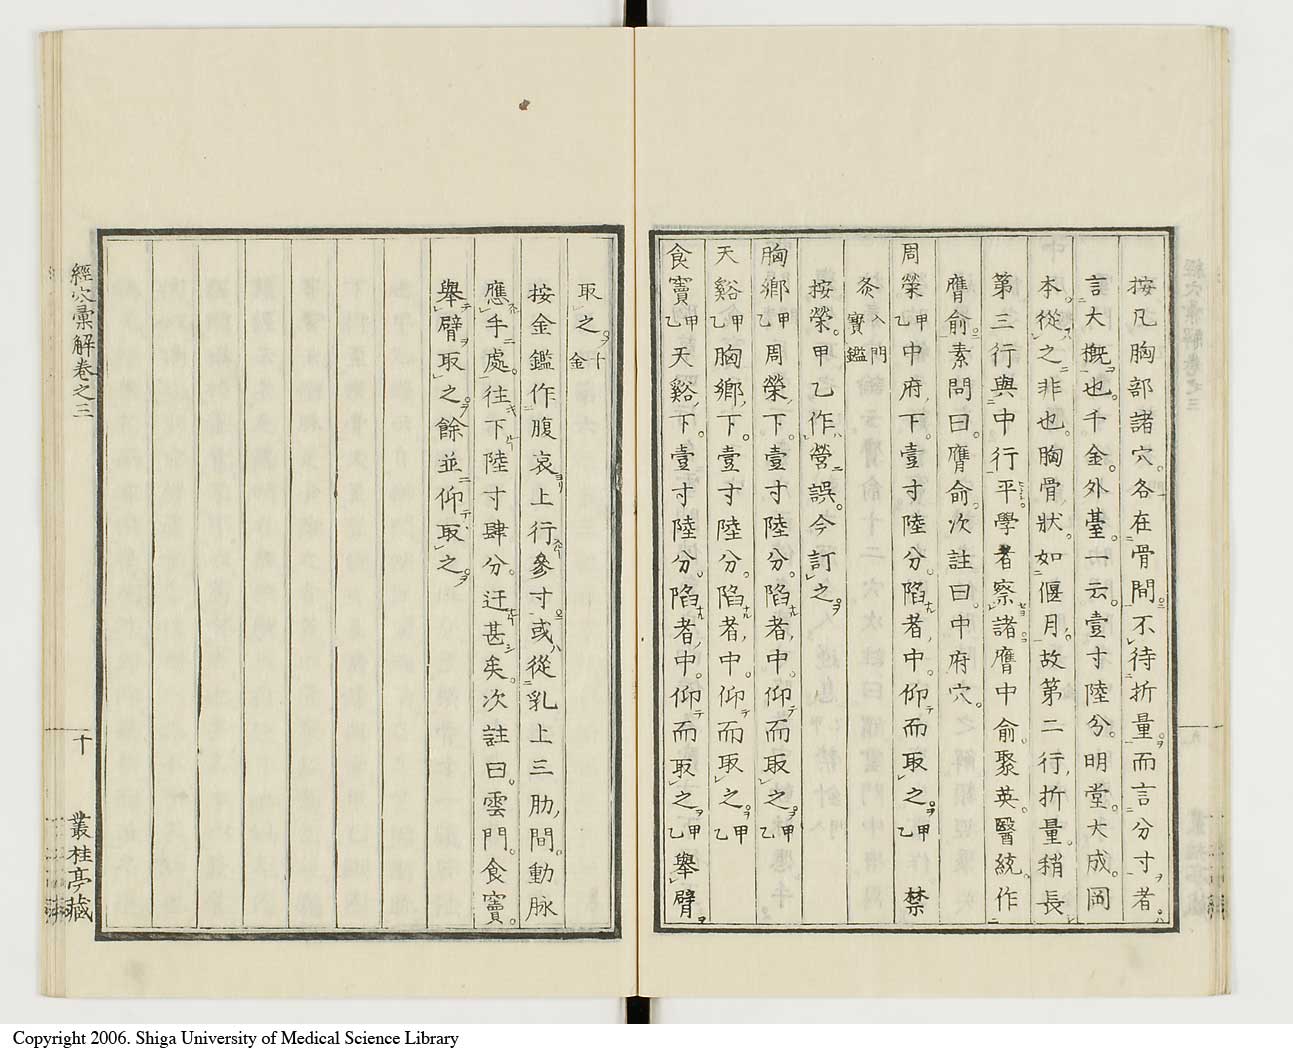 按凡胸部諸穴各在骨間不待折量而言分寸者
言大槪也千金外臺云壹寸陸分明堂大成岡
本從之非也胸骨狀如偃月故第二行折量稍長
第三行與中行平學者察諸膺中俞聚英醫統作
膺俞素問曰膺俞次註曰中府穴
周榮甲乙中府下壹寸陸分陷者中仰而取之甲乙禁
灸入門寶鑑
按榮甲乙作營誤今訂之
胸鄉甲乙周榮下壹寸陸分陷者中仰而取之甲乙
天谿甲乙胸鄉下壹寸陸分陷者中仰而取之甲乙
食竇甲乙天谿下壹寸陸分陷者中仰而取之甲乙舉臂
取之千金
按金鑑作腹哀上行參寸或從乳上三肋間動脉
應手處往下陸寸肆分迂甚矣次註曰雲門食竇
舉臂取之餘並仰取之
經穴彙解卷之三
十
叢桂亭藏
Copyright 2006. Shiga University of Medical Science Library